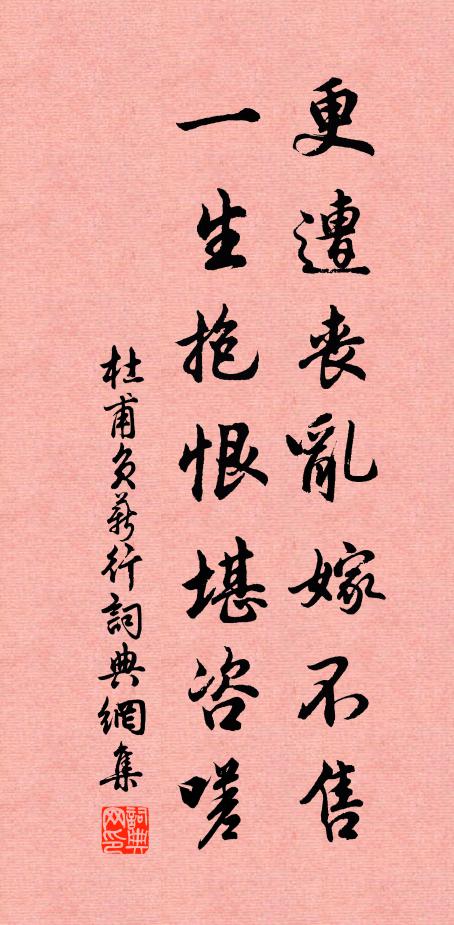 更遭丧亂嫁不售
一生抱恨堪咨嗟
杜甫負薪行詞典網集
詞典
网印